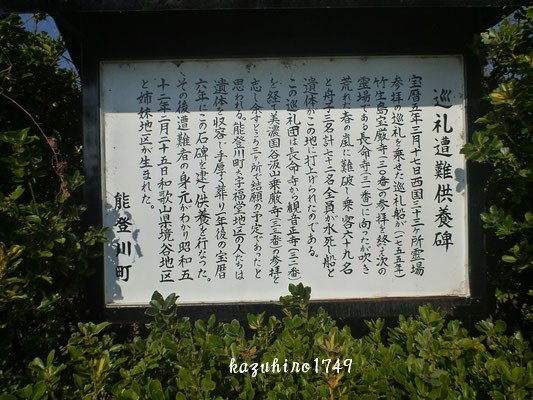 巡礼遭難供養碑
宝暦五年三月十七日西国三十三ヶ所霊場
(一七五五年)
参拝の巡礼を乗せた巡礼船が
竹生島宝厳寺(三〇番)の参拝を終え次の
霊場である長命寺(三一番)に向った吹き
荒れた春の嵐に難破し乗客六十九名
と舟子三名計七十二名全員が水死し船と
遺体がこの地に打上げられたのである。
この巡礼団は長命寺から観音正寺(三二番)
を経て美濃国谷汲山華厳寺(三三番)の参拝を
忘し余すところ三ヶ所で結願の予定であったと
思われる。能登川町大字福堂地区の人たちは
遺体を収容し手厚く葬り一年後の宝暦
六年にこの石碑を建て供養を行なった。
その後遭難者の身元がわかり昭和五
十二年三月二十五日和歌山県境谷地区
と姉妹地区が生まれた。
能登川町
kazuhiro1749